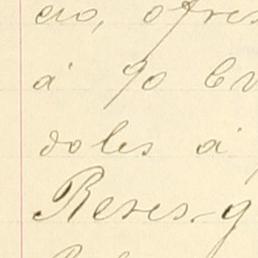 cio, ofres
á 90 Cv
doles á
Reses q